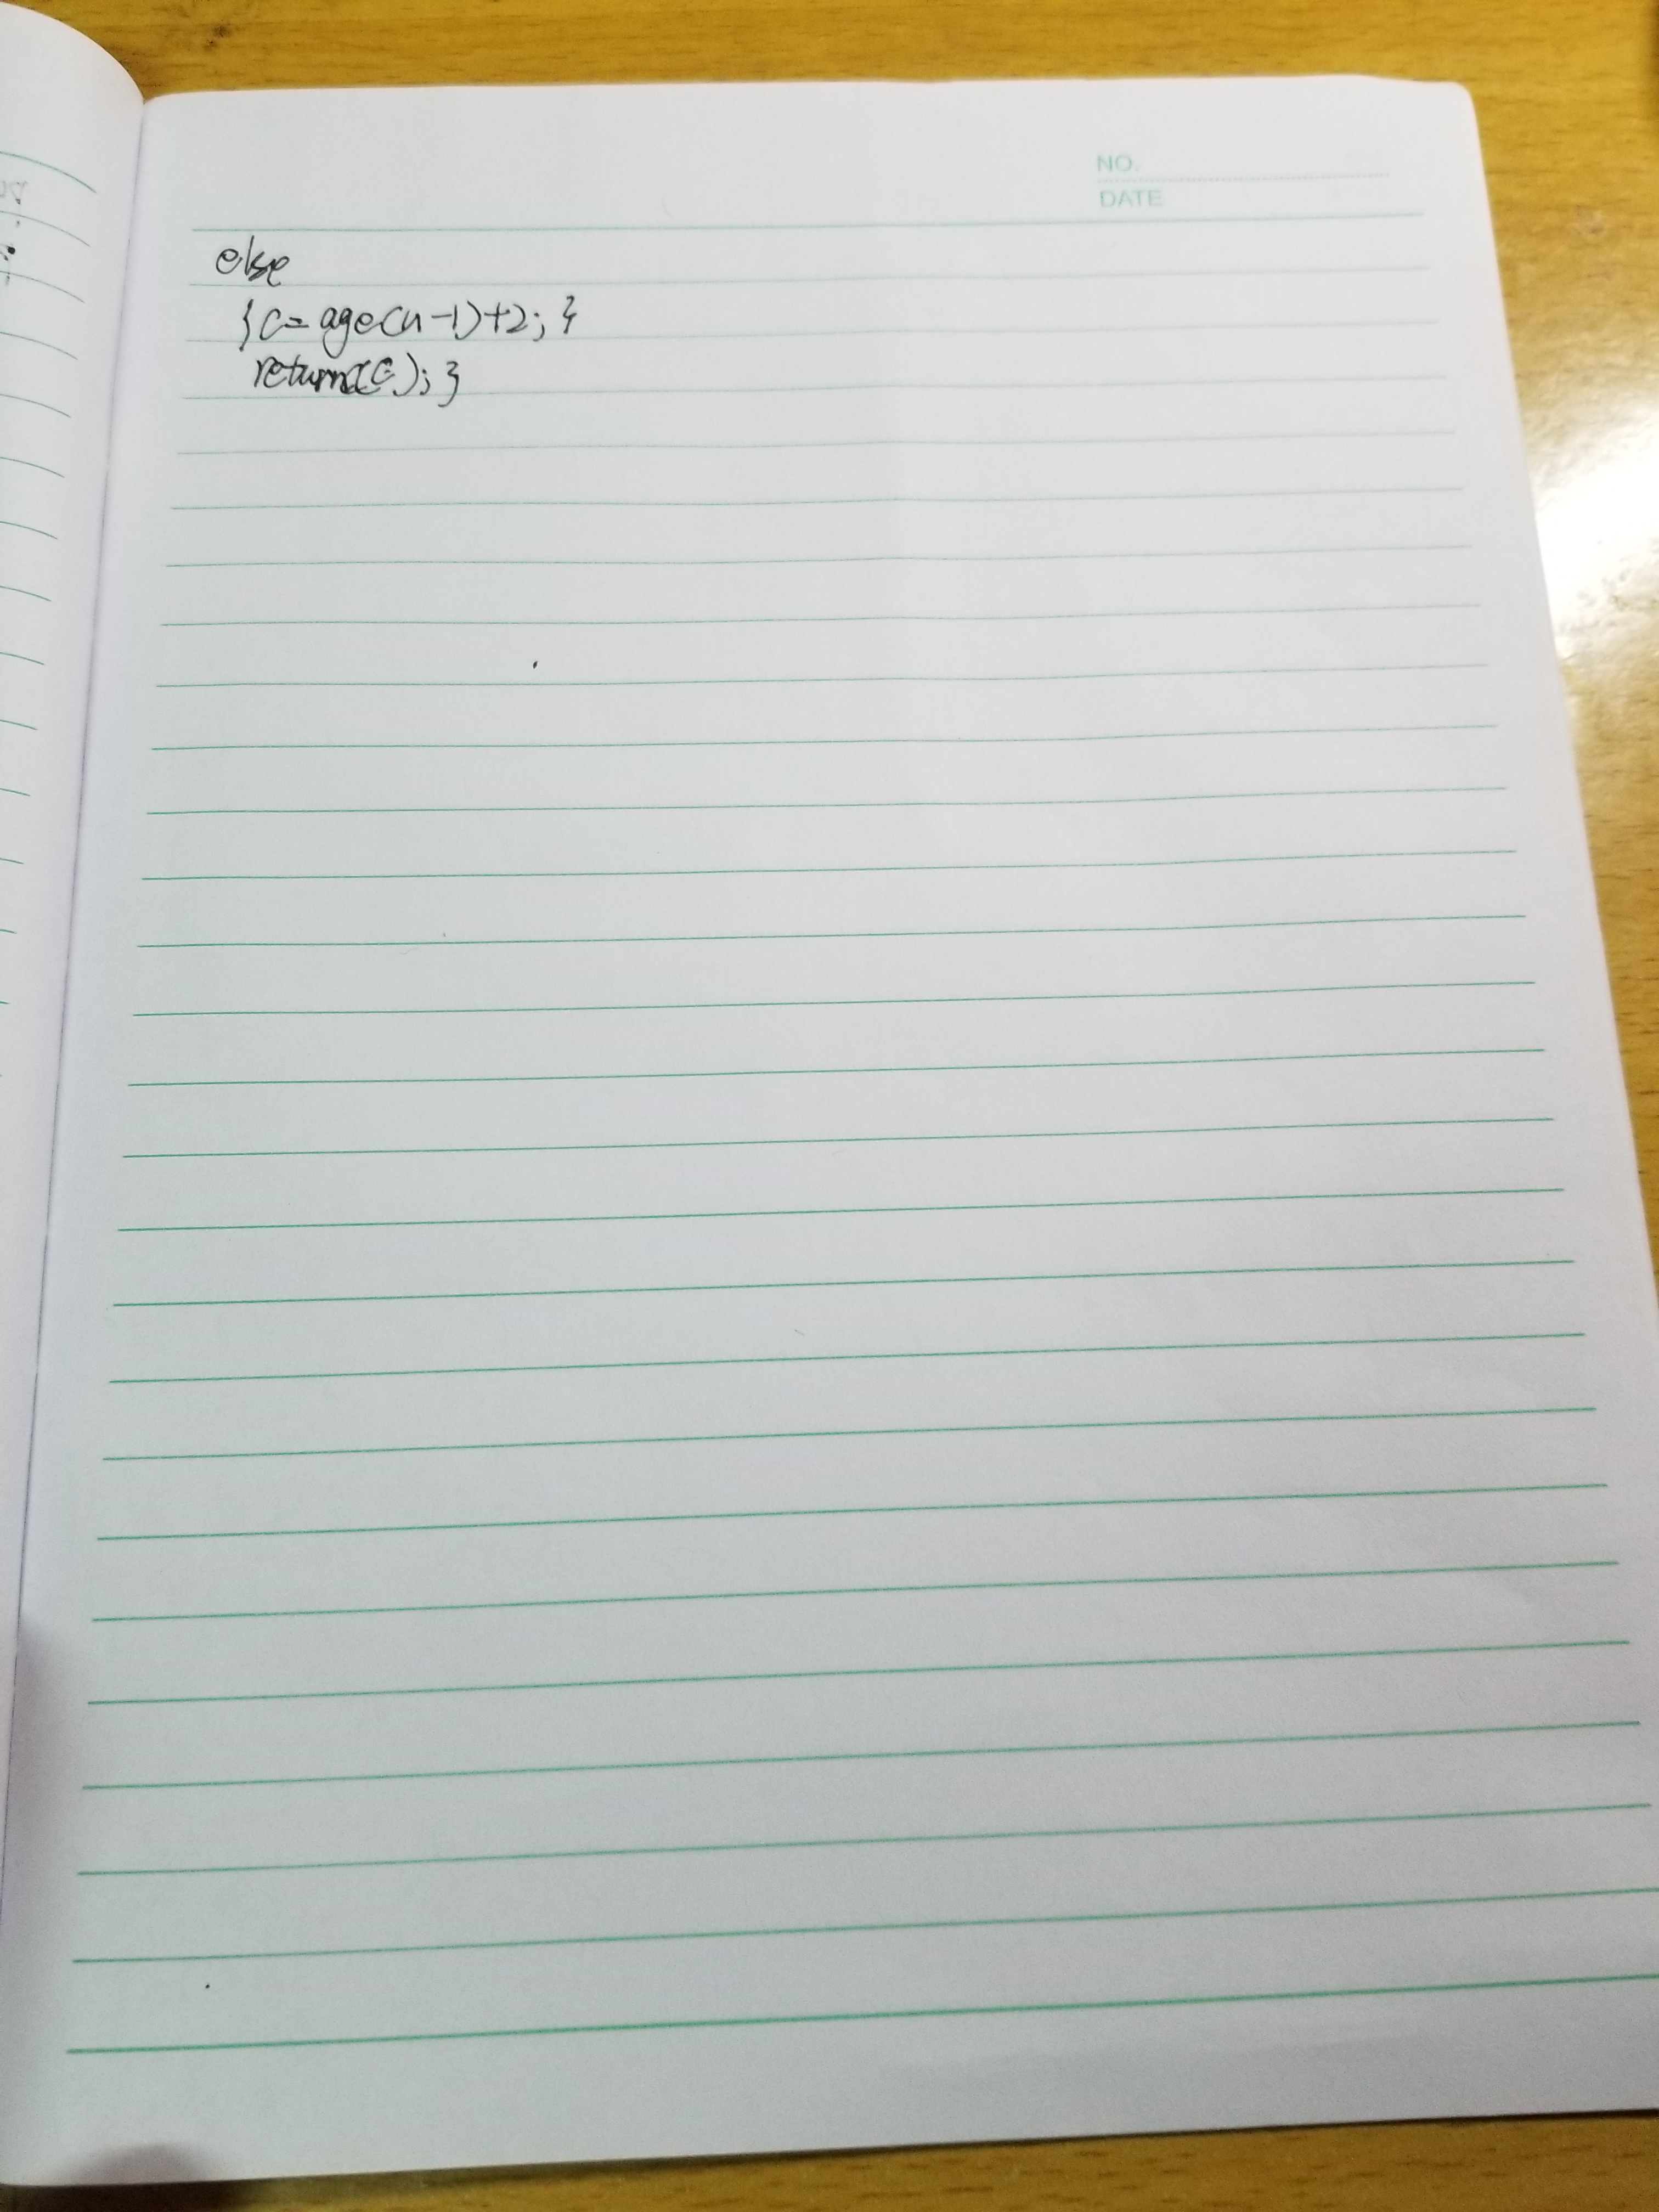 NO.
DATE
else
{c=age(n-1)+2;}
return(c);}